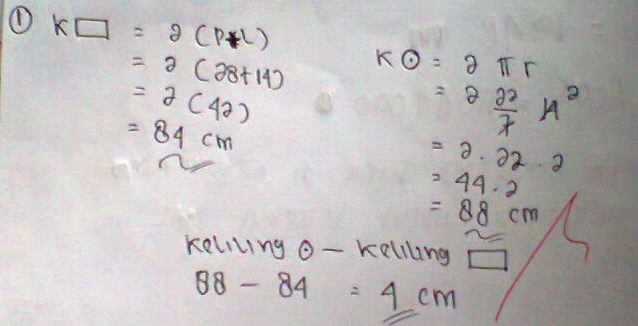 ① K▭ = 2 (P+L)
= 2 (28+14)
= 2 (42)
= 84 cm
K⊙ = 2 π r
= 2 22/7 14 2
= 2 . 22 . 2
= 44 . 2
= 88 cm
Keliling ⊙ – Keliling ▭
88 – 84 = 4 cm